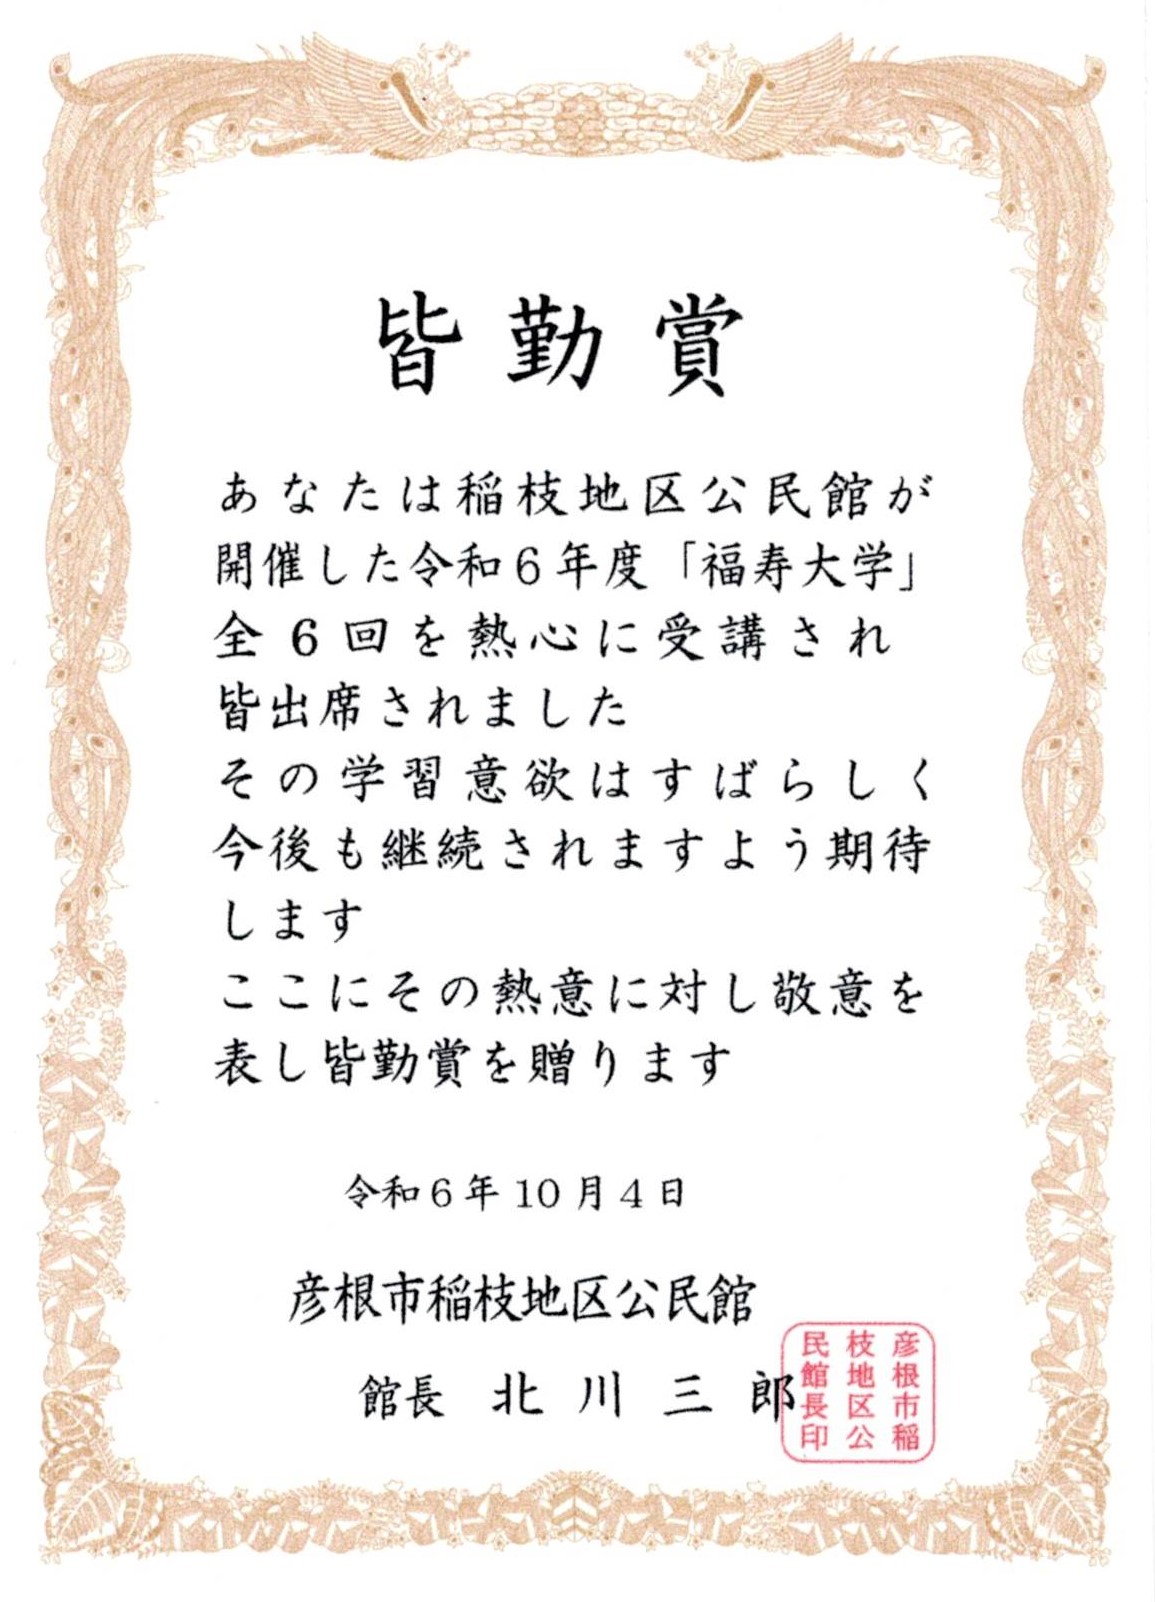 皆勤賞
あなたは稲枝地区公民館が
開催した令和6年度「福寿大学」
全6回を熱心に受講され
皆出席されました
その学習意欲はすばらしく
今後も継続されますよう期待
します
ここにその熱意に対し敬意を
表し皆勤賞を贈ります
令和6年10月4日
彦根市稲枝地区公民館
館長 北川三郎
彦根市稲
枝地区公
民館長印